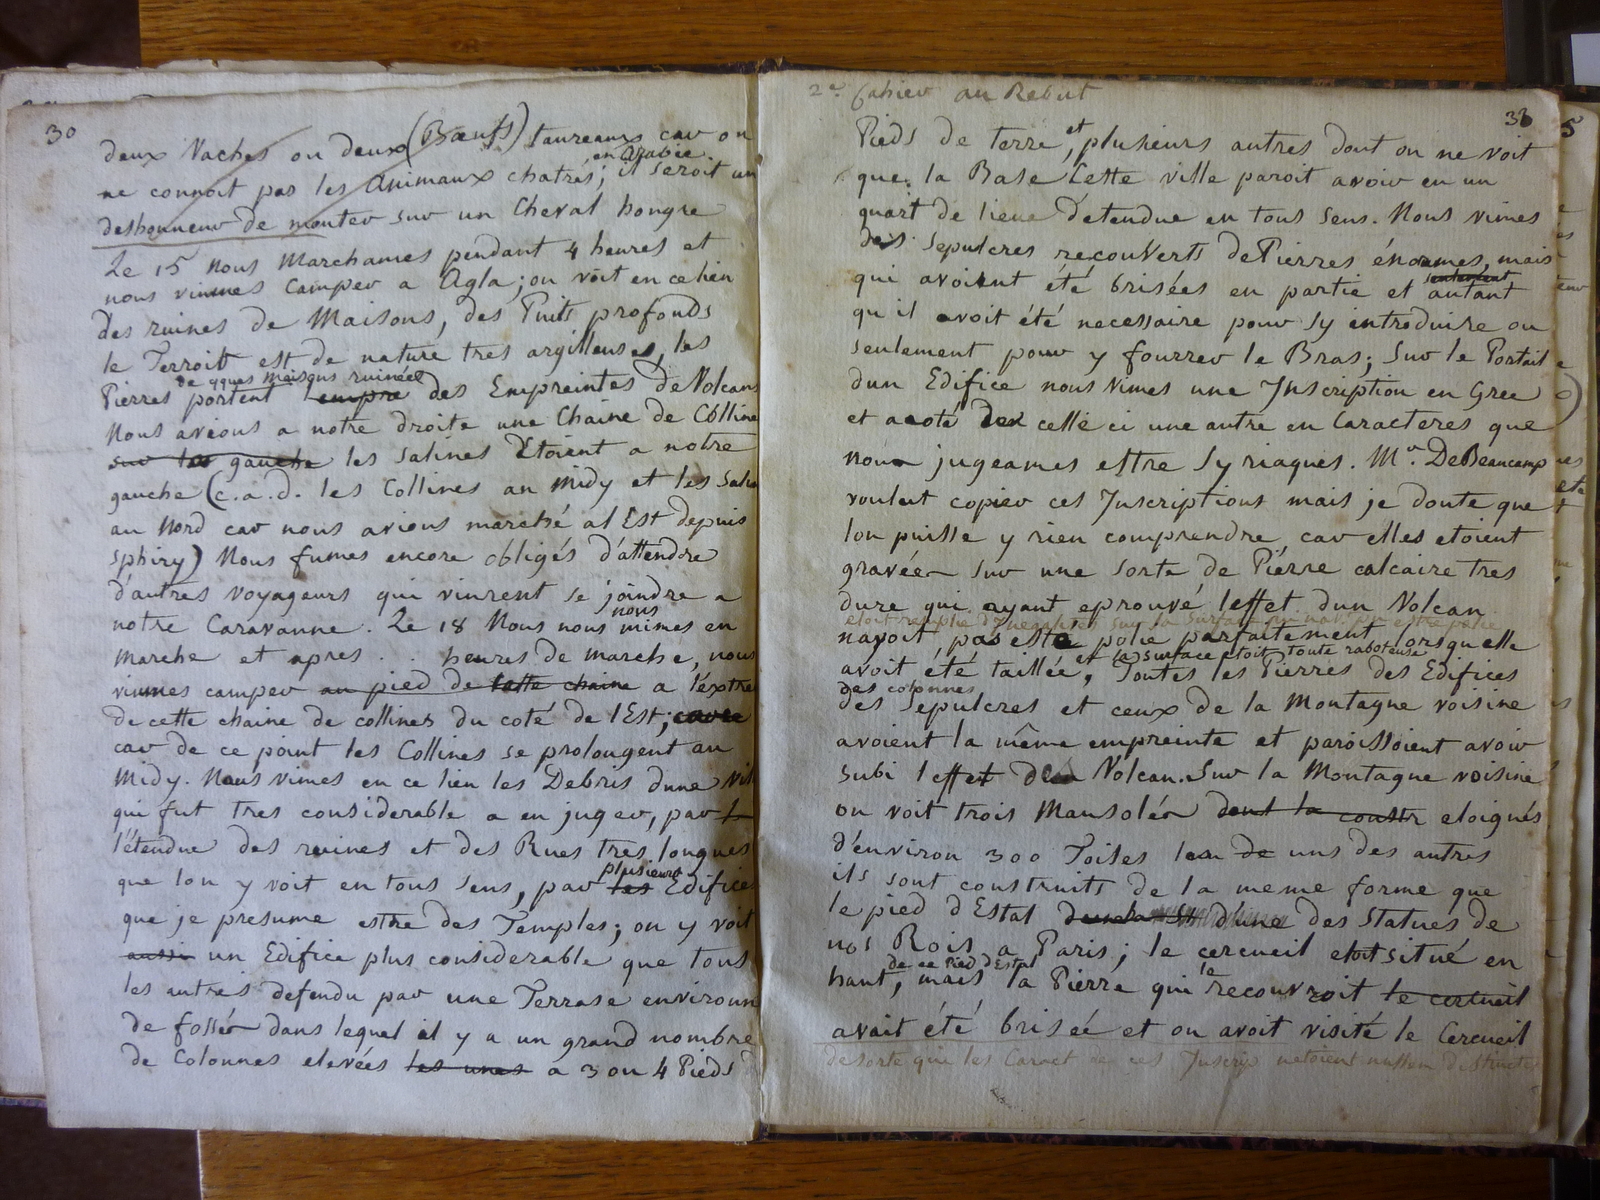 30
deux Vaches ou deux (Bœufs) taureaux car on
en Arabie.
ne connoit pas les Animaux chatrés; il seroit un
deshonneur de monter sur un Cheval hongre
Le 15 Nous Marchames pendant 4 heures et
nous vinmes camper a Agla; on voit en ce lieu
des ruines de Maisons, des Puits profonds
le Terroit est de nature tres argilleuse, les
de qques Maisons ruinées
Pierres portent empre des Empreintes de Volcans
Nous avions a notre droite une Chaine de Colline
sur la gauche les salines Etoient a notre
gauche (c.a.d. les Collines au Midy et les Salin
au Nord car nous avions marché a l Est depuis
Sphiry) Nous fumes encore obligés d'attendre
d'autres voyageurs qui vinrent se joindre a
nous
notre Caravanne. Le 18 Nous nous mimes en
marche et apres . . heures de marche, nous
vinmes camper au pied de cette chaine a l'extre
de cette chaine de collines du coté de l'Est;
car de ce point les Collines se prolongent au
Midy. Nous vimes en ce lieu les Debris d'une Vil
qui fut tres considerable a en juger, par l
l'étendue des ruines et des Rues tres longues
plusieurs
que lon y voit en tous sens, par les Edifices
que je presume estre des Temples; on y voit
aussi un Edifice plus considerable que tous
les autres defendu par une Terrase environn
de fossés dans lequel il y a un grand nombre
de Colonnes elevées les unes a 3 ou 4 Pieds
2e. Cahier au Rebut
et
Pieds de terre, plusieurs autres dont on ne voit
que la Base Cette ville paroit avoir eu un
quart de lieue detendue en tous sens. Nous vimes
des sepulcres recouverts de Pierres énormes, mais
seulement
qui avoient été brisées en partie et autant
qu il avoit été necessaire pour sy introduire ou
seulement pour y fourrer le Bras; sur le Portail
dun Edifice nous vimes une Inscription en Grec
et a coté de celle ci une autre en Caracteres que
nous jugeames estre Syriaques. Mr. DeBeaucamp
voulut copier ces Inscriptions mais je doute que
lon puisse y rien comprendre, car elles etoient
gravées sur une sorte de Pierre calcaire tres
dure qui ayant eprouvé leffet dun Volcan
etoit remplie d'Inegalités sur sa surface
navoit pas esté polie parfaitement lorsquelle
et la surface etoit toute raboteuse
avoit été taillée, Toutes les Pierres des Edifices
des colonnes
des sepulcres et ceux de la Montagne voisine
avoient la même empreinte et paroissoient avoir
subi leffet Volcan. Sur la Montagne voisine
on voit trois Mausolés dont la constr eloignés
d'environ 300 Toises de uns des autres
ils sont construits de la meme forme que
le pied d Estal d'une des Statues de
nos Rois a Paris; le cercueil etoit situé en
de ce Pied d'Estal
le
haut, mais la Pierre qui recouvroit le cercueil
avait été brisée et on avoit visité le Cercueil
de sorte que les Caract de ces Inscrip netoient